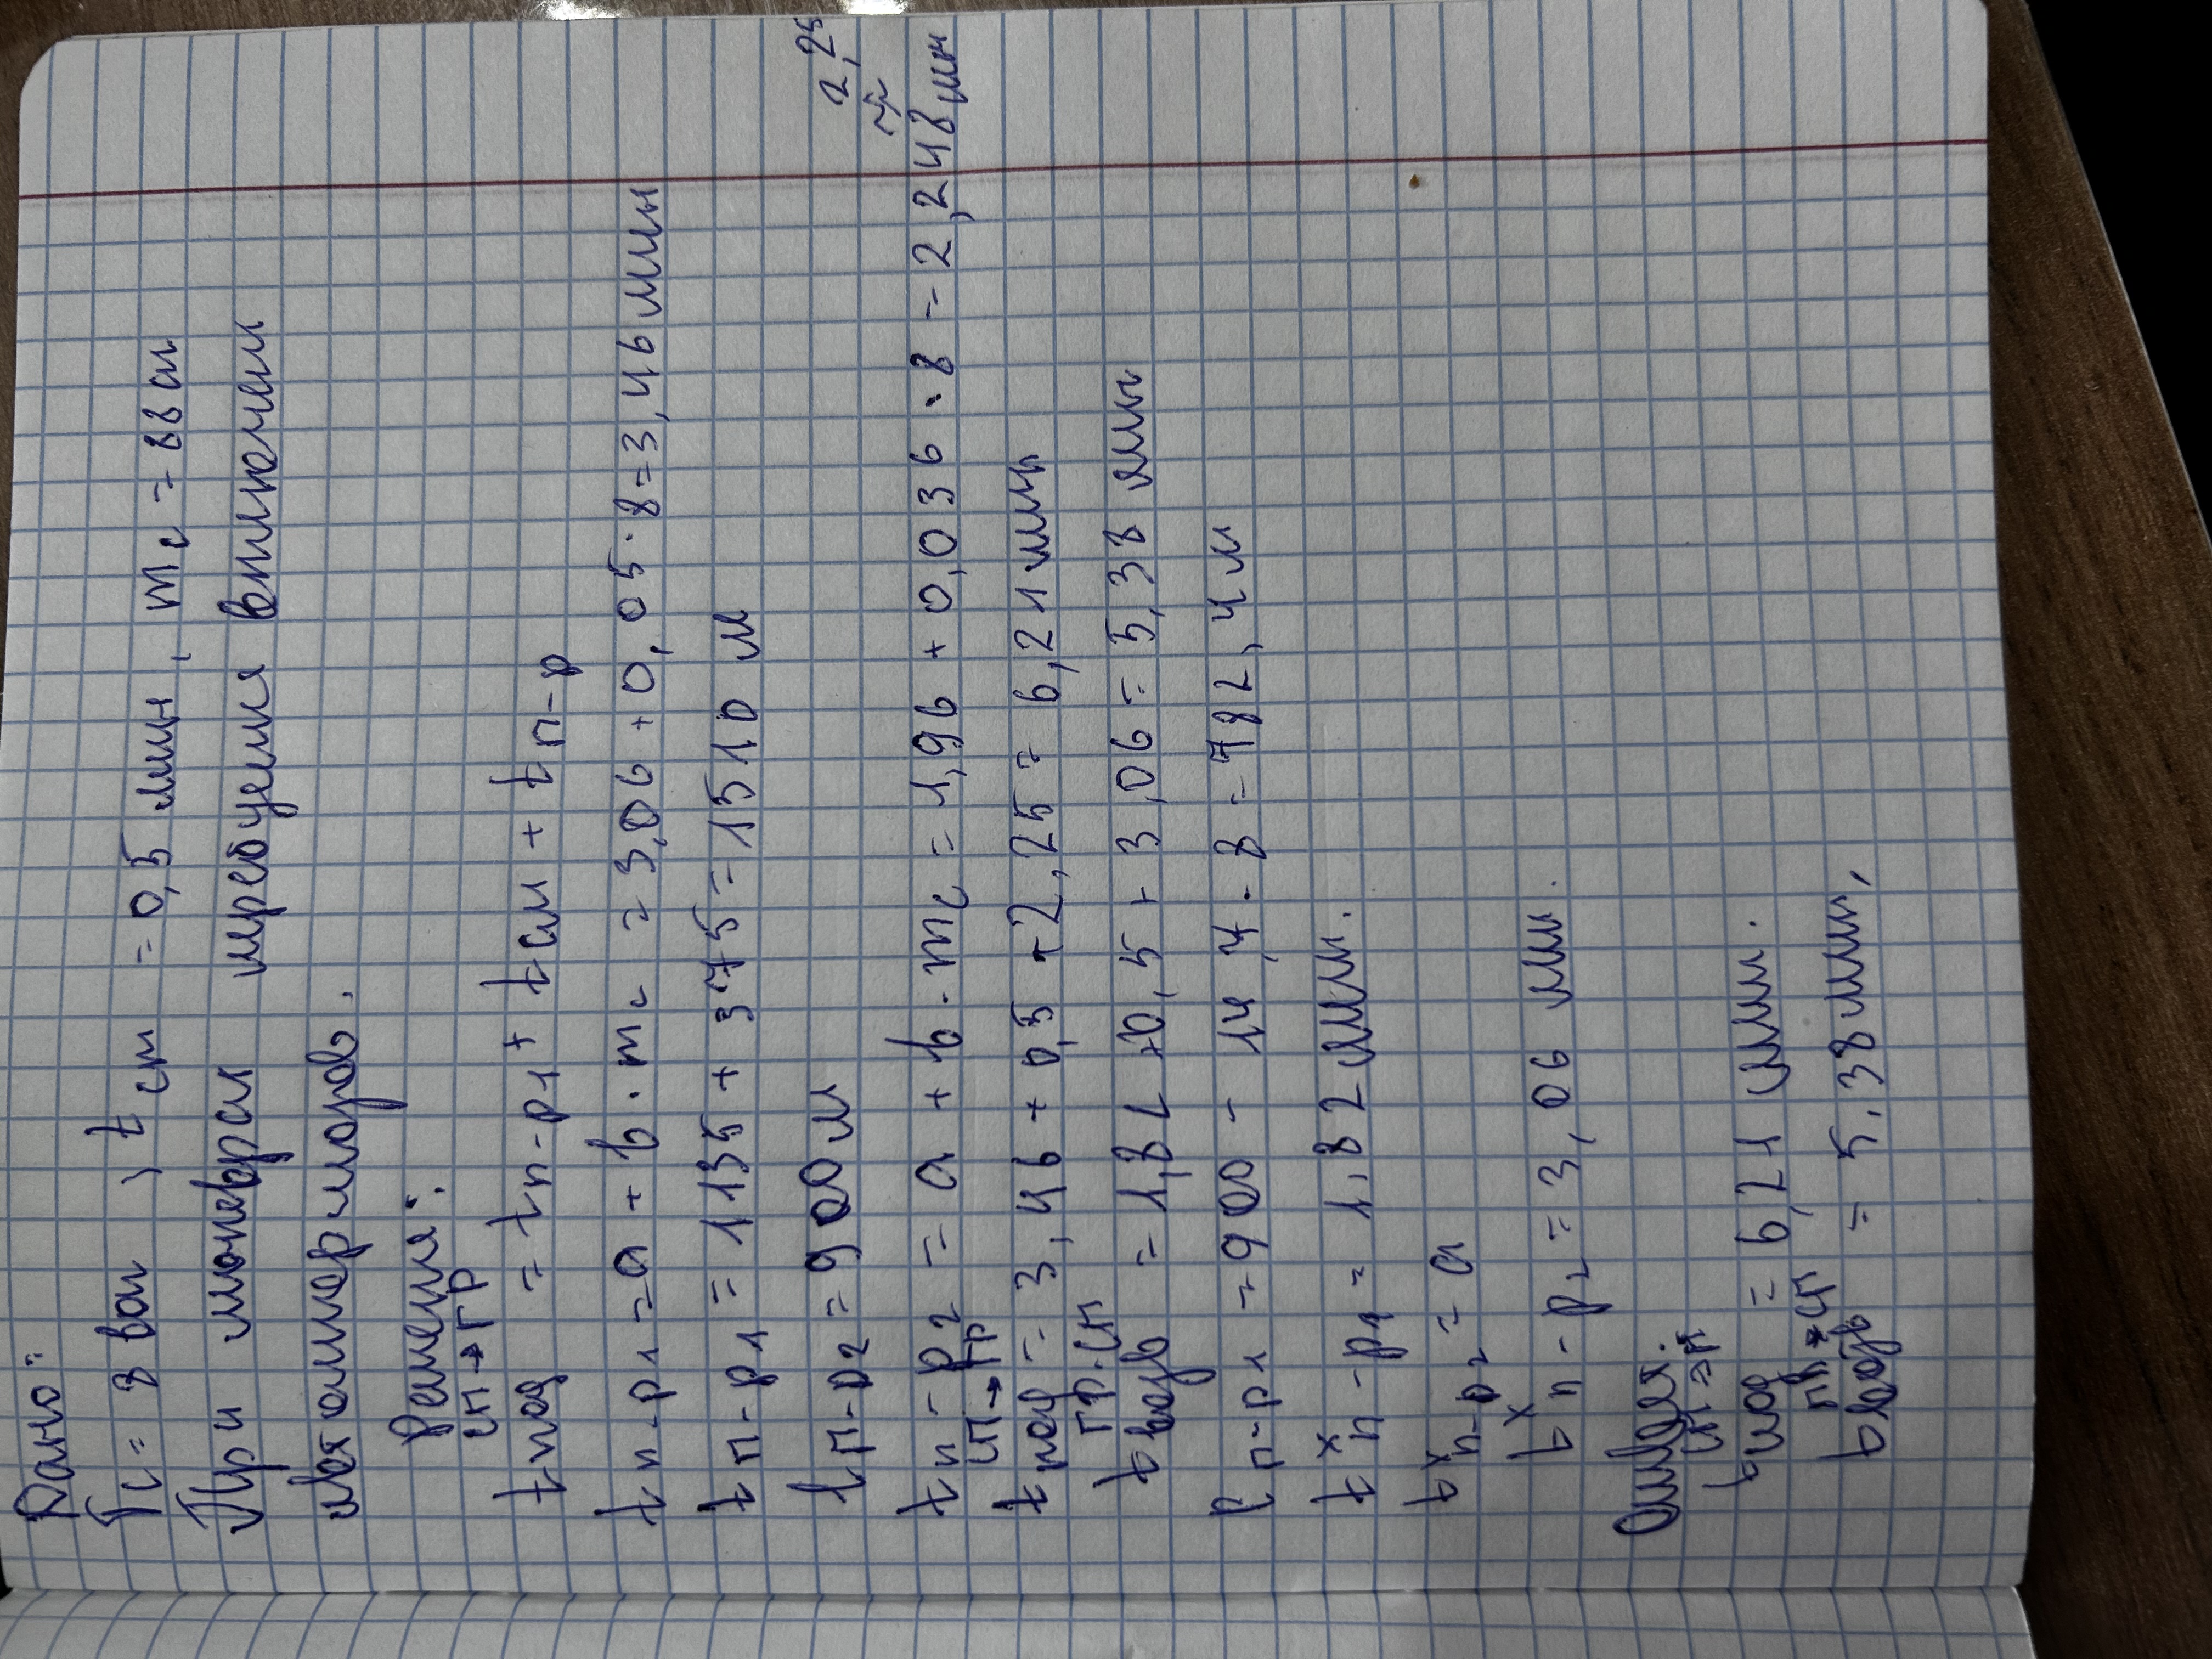 Дано:
Tc = 8 ваг , t ст = 0,5 мин , mc = 88 ан
При маневрах требуется включение
автотормозов.
Решение:
t под сп→гр = t п-р1 + t ст + t п-р
t п-р1 = a + b · mc = 3,06 + 0,05 · 8 = 3,46 мин
t п-р1 = 1135 + 375 = 1510 м
l п-р2 = 900 м
2,25
t п-р2 = a + b · mc = 1,96 + 0,036 · 8 = 2,248 мин
t под сп→гр = 3,46 + 0,5 + 2,25 = 6,21 мин
t возв гр.сп = 1,82 + 0,5 + 3,06 = 5,38 мин
l п-р1 = 900 - 14,4 · 8 = 782,4 м
t х п-р1 = 1,82 мин.
t х п-р2 = a
t х п-р2 = 3,06 мин.
Ответ:
t под = 6,21 мин.
t возв = 5,38 мин,